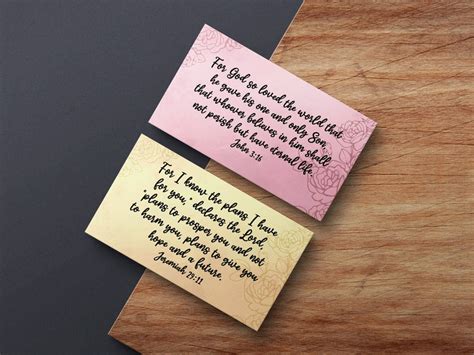 For God so loved the world that
he gave his one and only Son,
that whoever believes in him shall
not perish but have eternal life.
John 3:16
For I know the plans I have
for you," declares the Lord,
"plans to prosper you and not
to harm you, plans to give you
hope and a future.
Jeremiah 29:11